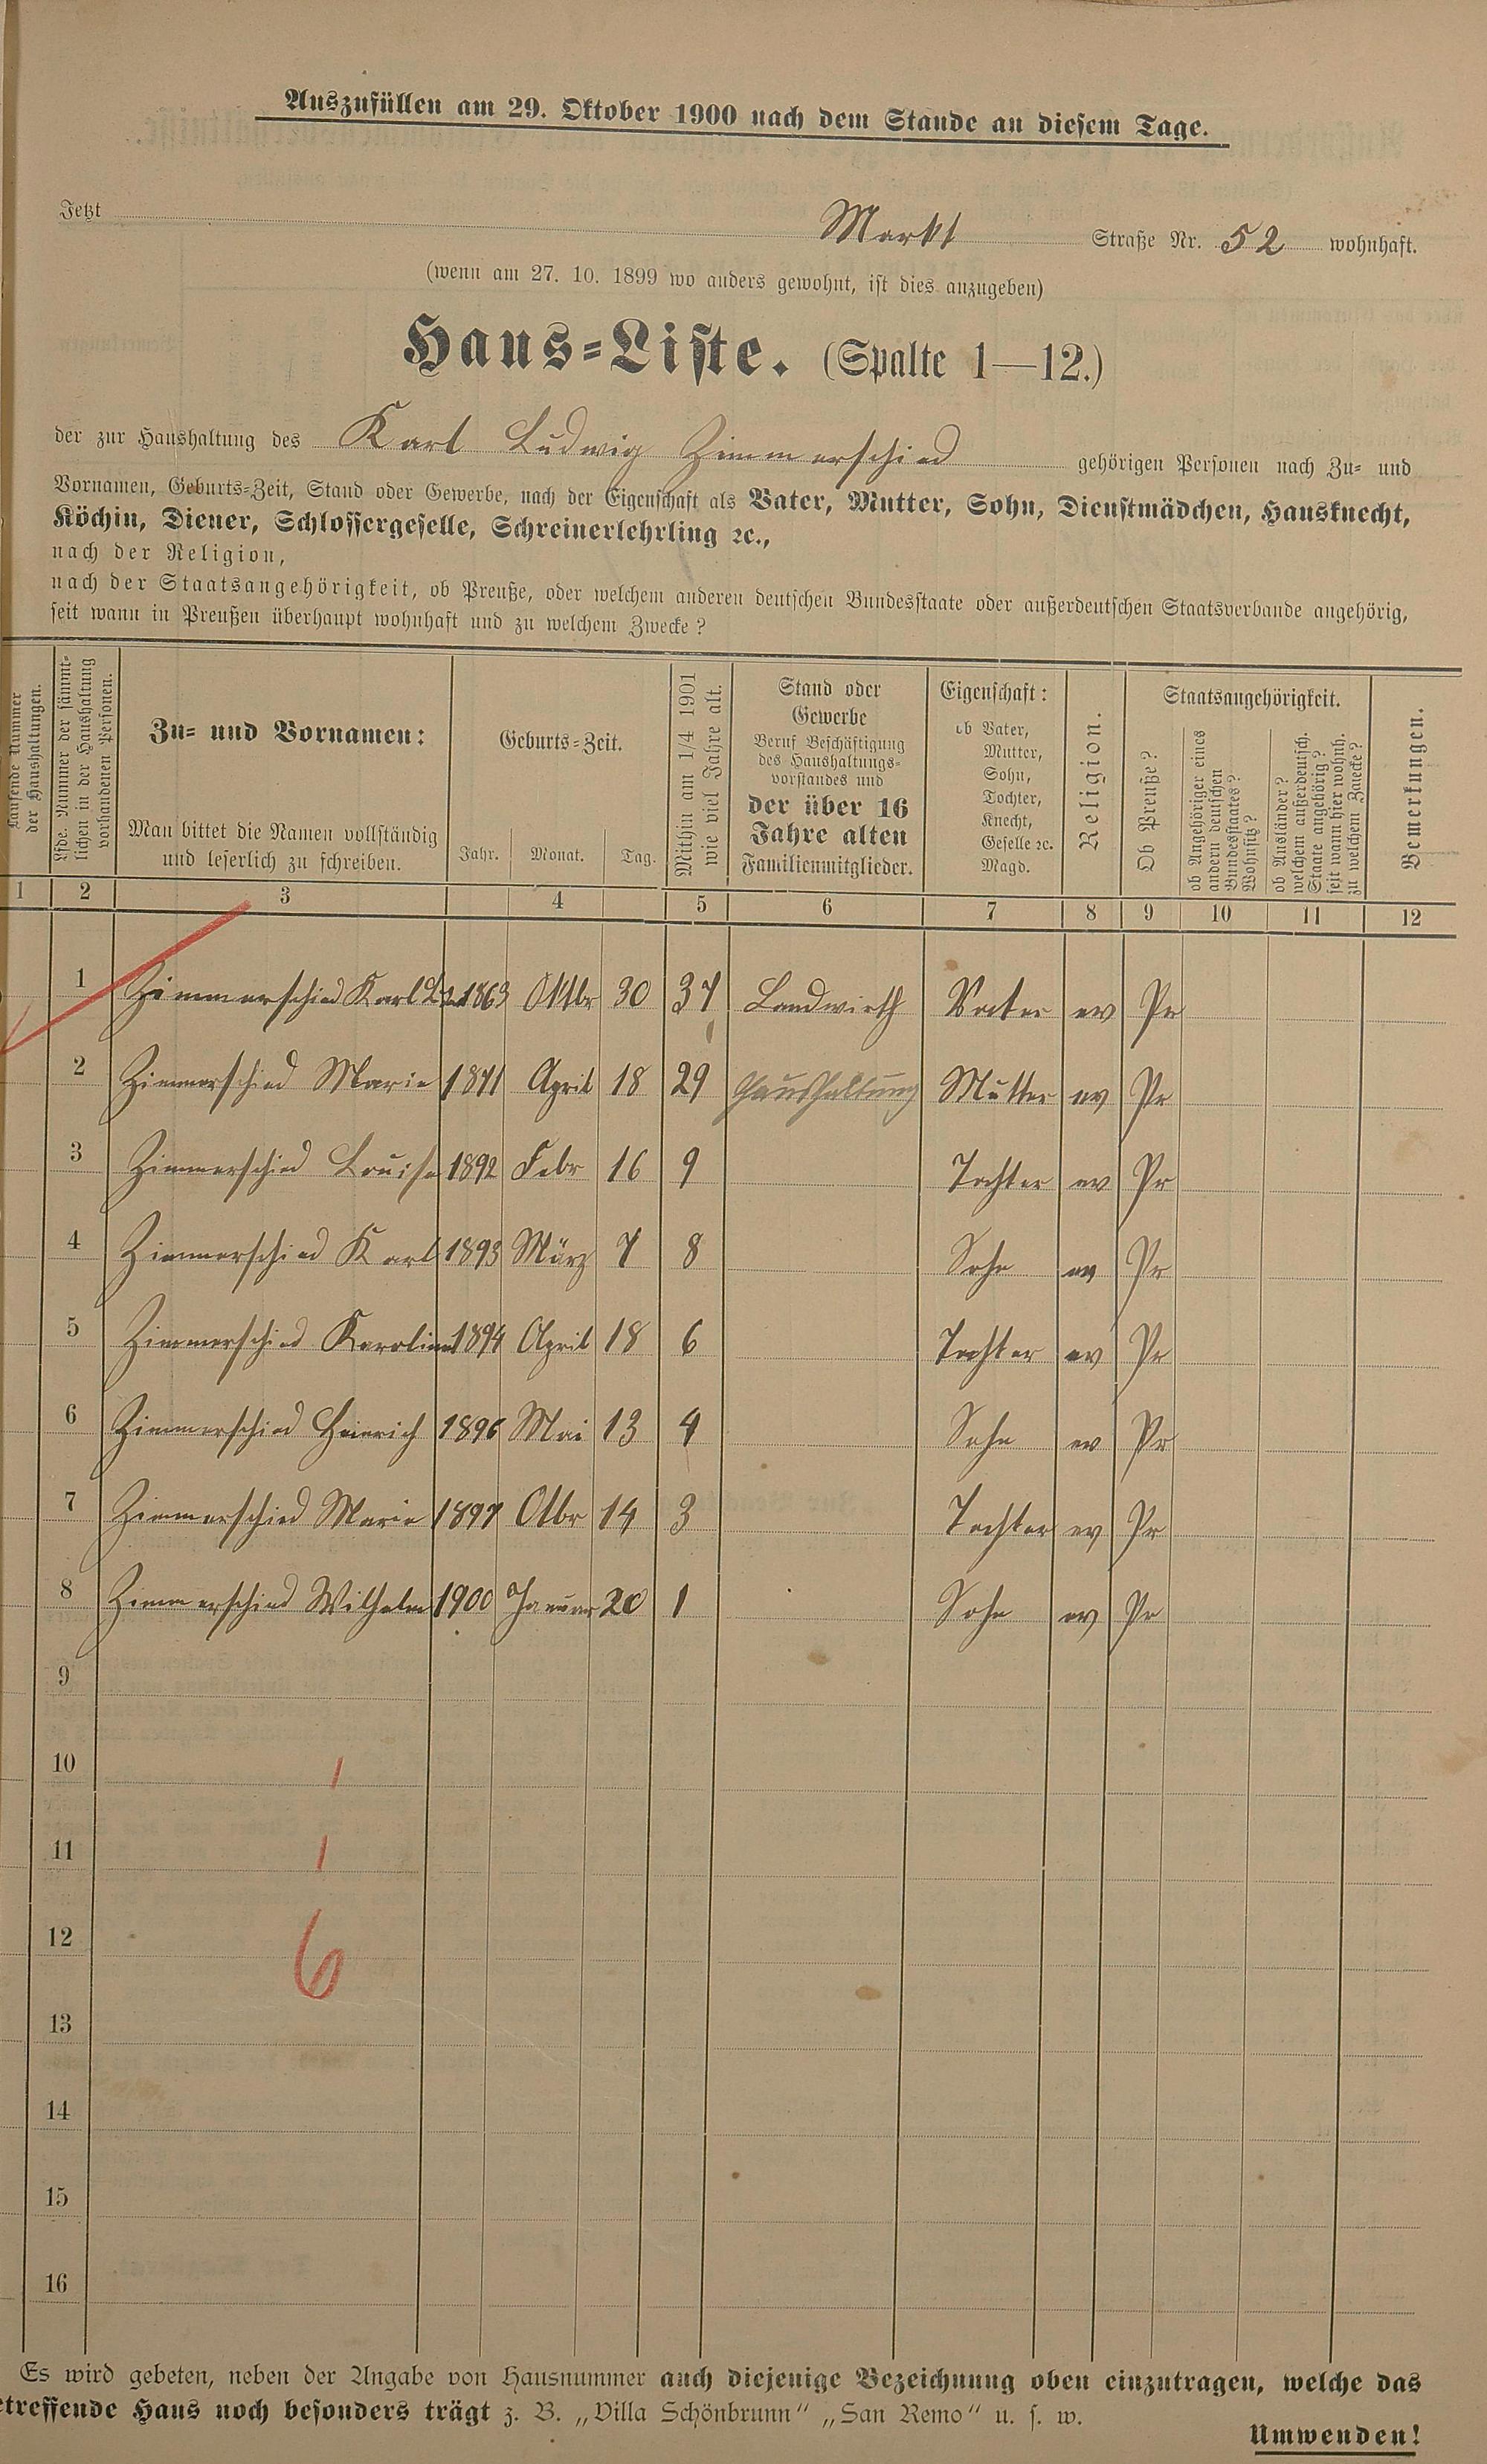 Auszufüllen am 29. Oktober 1900 nach dem Stande an diesem Tage.
Jetzt Markt Straße Nr. 52 wohnhaft.
(wenn am 27. 10. 1899 wo anders gewohnt, ist dies anzugeben)
Haus-Liste. (Spalte 1—12.)
der zur Haushaltung des Karl Ludwig Zimmerschied gehörigen Personen nach Zu- und
Vornamen, Geburts-Zeit, Stand oder Gewerbe, nach der Eigenschaft als Vater, Mutter, Sohn, Dienstmädchen, Hausknecht,
Köchin, Diener, Schlossergeselle, Schreinerlehrling ꝛc.,
nach der Religion,
nach der Staatsangehörigkeit, ob Preuße, oder welchem anderen deutschen Bundesstaate oder außerdeutschen Staatsverbande angehörig,
seit wann in Preußen überhaupt wohnhaft und zu welchem Zwecke?
Laufende Nummer
der Haushaltungen.
Lfde. Nummer der sämmt-
lichen in der Haushaltung
vorhandenen Personen.
Zu- und Vornamen:
Man bittet die Namen vollständig
und leserlich zu schreiben.
Geburts-Zeit.
Jahr. Monat. Tag.
Mithin am 1/4 1901
wie viel Jahre alt.
Stand oder
Gewerbe
Beruf Beschäftigung
des Haushaltungs-
vorstandes und
der über 16
Jahre alten
Familienmitglieder.
Eigenschaft:
ob Vater,
Mutter,
Sohn,
Tochter,
Knecht,
Geselle ꝛc.
Magd.
Religion.
Staatsangehörigkeit.
Ob Preuße?
ob Angehöriger eines
andern deutschen
Bundesstaates?
Wohnsitz?
ob Ausländer?
welchem außerdeutsch.
Staate angehörig?
seit wann hier wohnh.
zu welchem Zwecke?
Bemerkungen.
1 2 3 4 5 6 7 8 9 10 11 12
1 Zimmerschied Karl Lud 1863 Oktbr 30 37 Landwirth Vater ev Pr
2 Zimmerschied Marie 1871 April 18 29 Haushaltung Mutter ev Pr
3 Zimmerschied Louise 1892 Febr 16 9 Tochter ev Pr
4 Zimmerschied Karl 1893 März 7 8 Sohn ev Pr
5 Zimmerschied Karoline 1894 April 18 6 Tochter ev Pr
6 Zimmerschied Heinrich 1896 Mai 13 4 Sohn ev Pr
7 Zimmerschied Marie 1897 Otbr 14 3 Tochter ev Pr
8 Zimmerschied Wilhelm 1900 Januar 20 1 Sohn ev Pr
9
10 1
11 1
12 6
13
14
15
16
Es wird gebeten, neben der Angabe von Hausnummer auch diejenige Bezeichnung oben einzutragen, welche das
etreffende Haus noch besonders trägt z. B. „Villa Schönbrunn“ „San Remo“ u. s. w.
Umwenden!